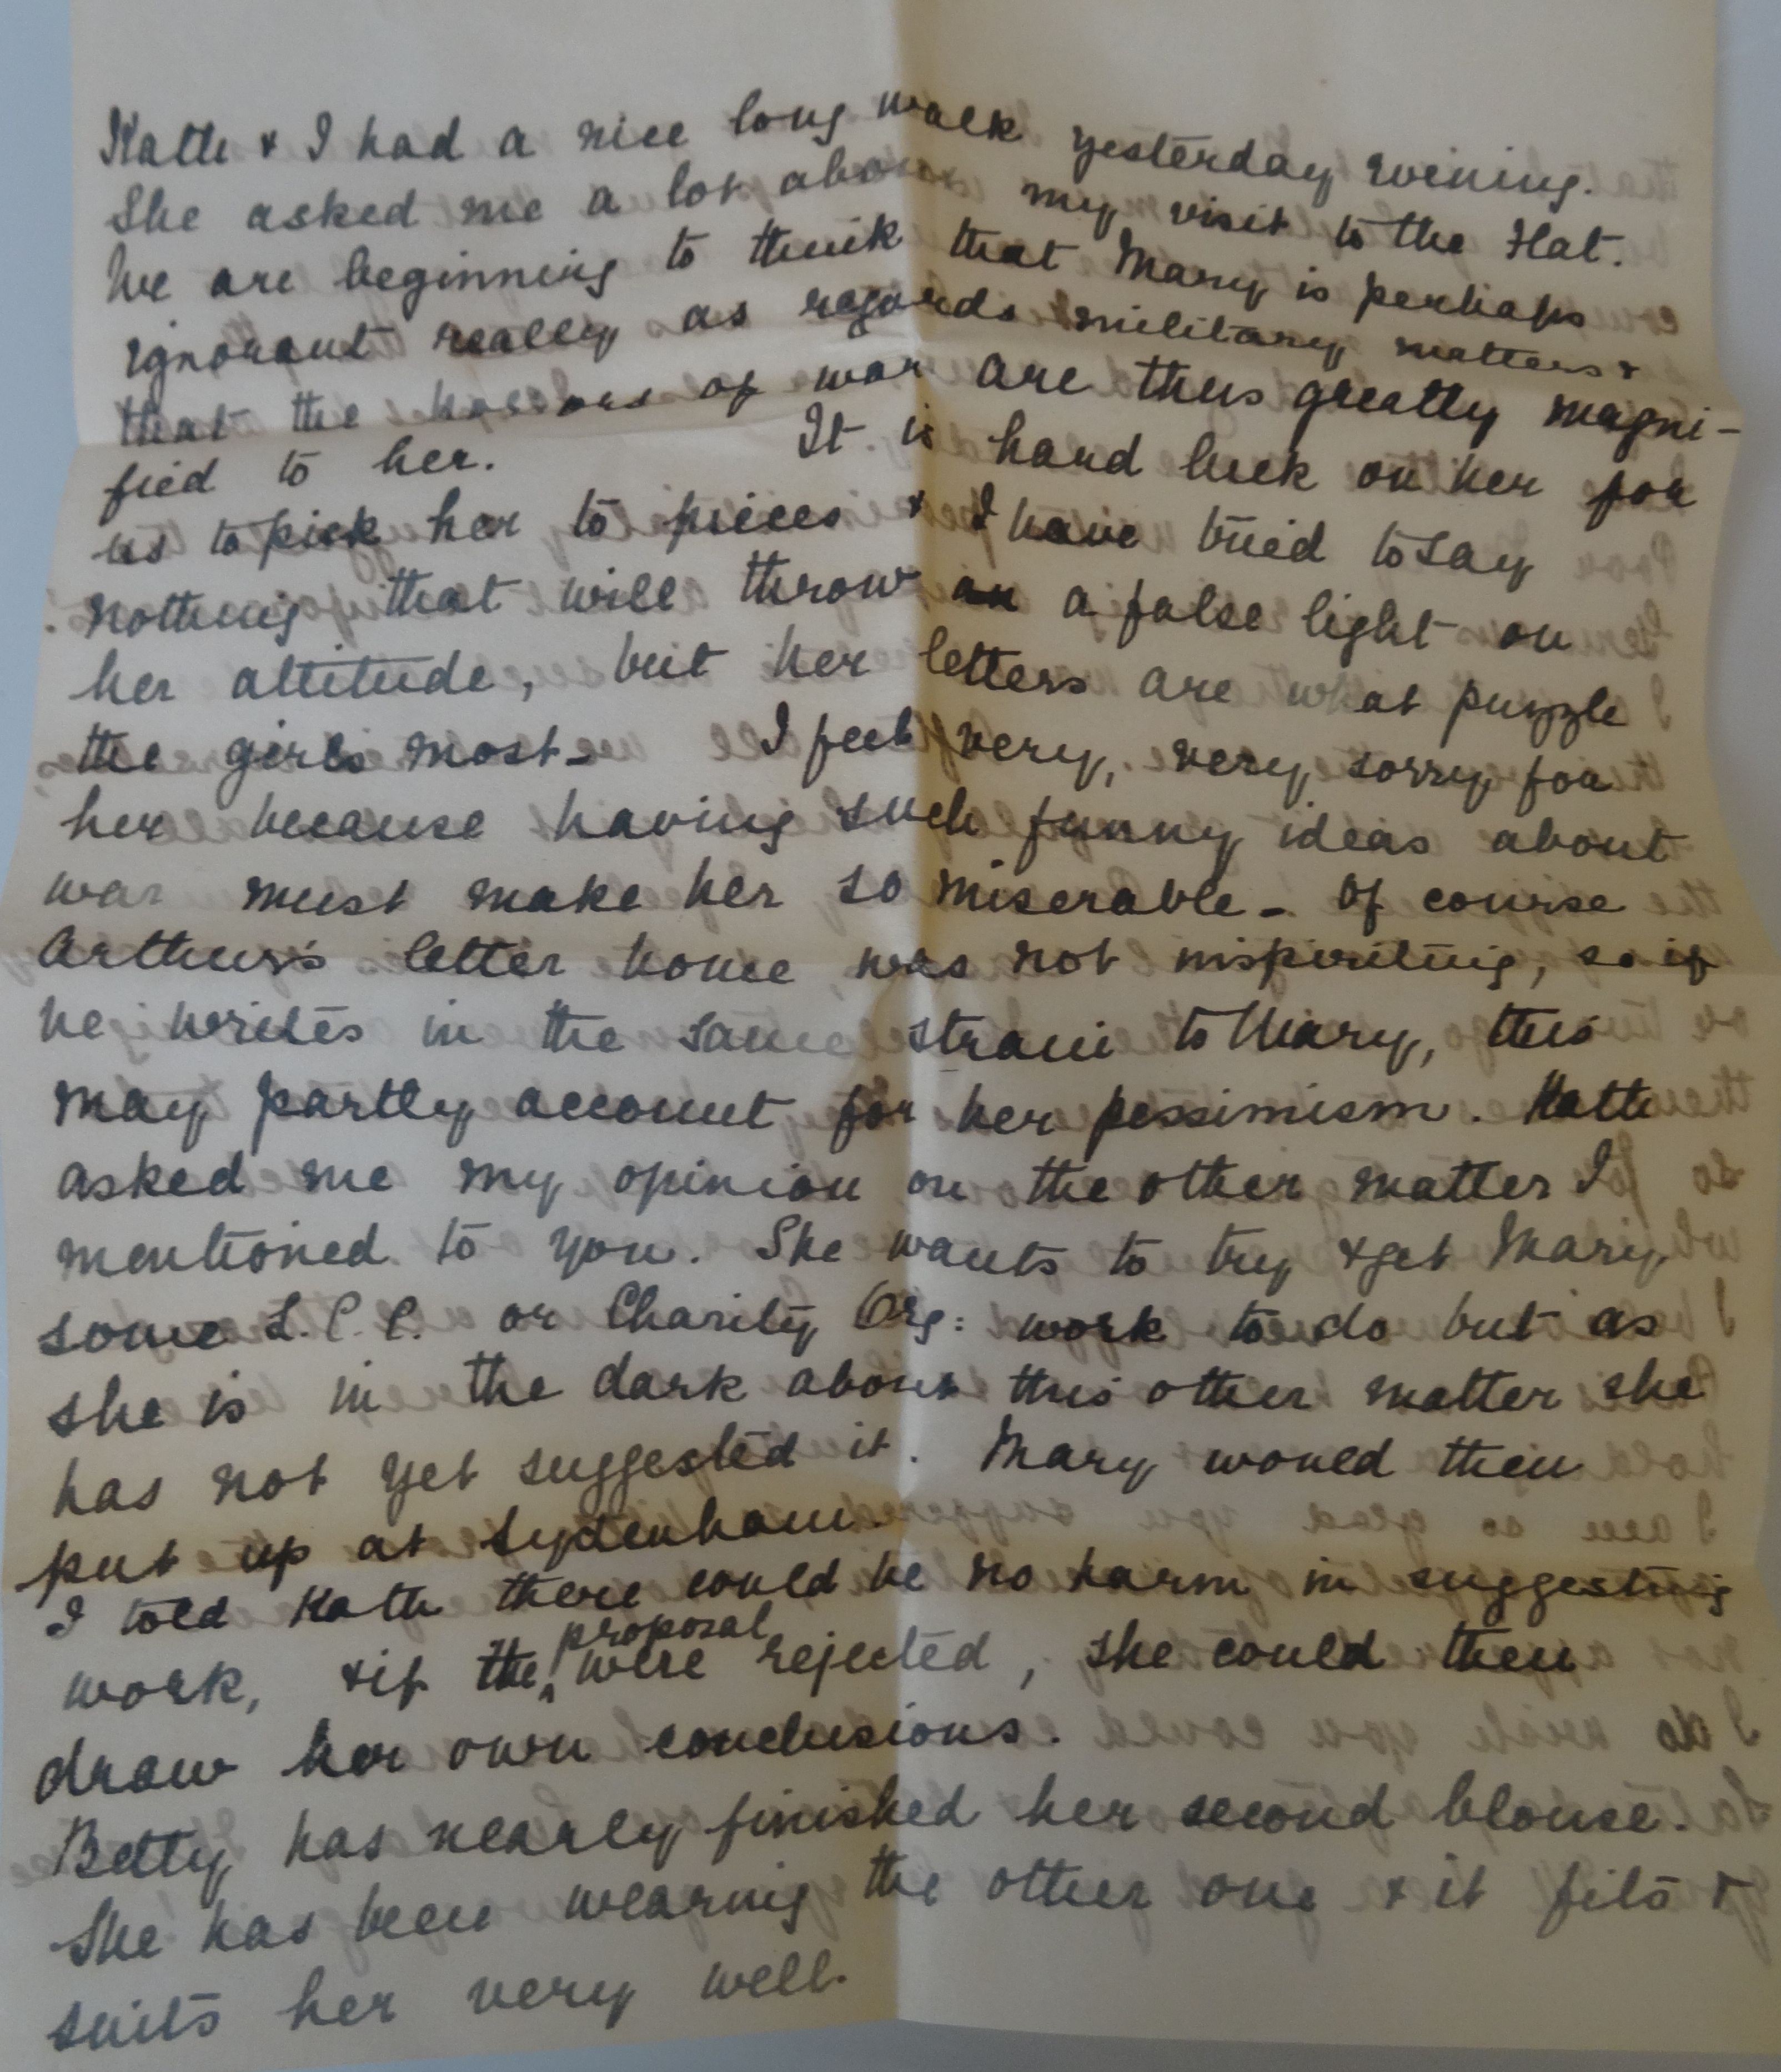 Kath & I had a nice long walk yesterday evening.
She asked me a lot about my visit to the Hat.
We are beginning to think that Mary is perhaps
ignorant really as regards military matters &
that the horrors of war are thus greatly magni-
fied to her. It is hard luck on her for
us to pick her to pieces & I have tried to say
nothing that will throw an a false light on
her attitude, but her letters are what puzzle
the girls most- I feel very, very sorry for
her because having such funny ideas about
war must make her so miserable - Of course
Arthur's letter home was not inspiriting, so if
he writes in the same strain to Mary, this
may partly account for her pessimism. Kath
asked me my opinion on the other matter I
mentioned to you. She wants to try & get Mary
some L.C.C. or Charity Org: work to do but as
she is in the dark about this other matter she
has not yet suggested it. Mary would then
put up at Sydenham.
I told Kath there could be no harm in suggesting
work, & if the proposal were rejected, she could then
draw her own conclusions.
Betty has nearly finished her second blouse.
She has been wearing the other one & it fits &
suits her very well.